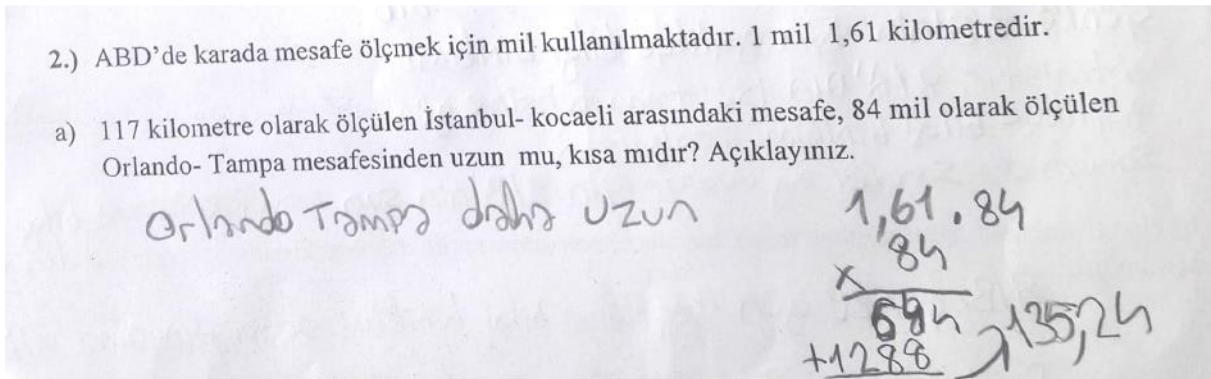 2.) ABD'de karada mesafe ölçmek için mil kullanılmaktadır. 1 mil 1,61 kilometredir.
a) 117 kilometre olarak ölçülen İstanbul- kocaeli arasındaki mesafe, 84 mil olarak ölçülen
Orlando- Tampa mesafesinden uzun mu, kısa mıdır? Açıklayınız.
Orlando Tampa daha uzun
1,61 . 84
x 84
644
+1288
135,24